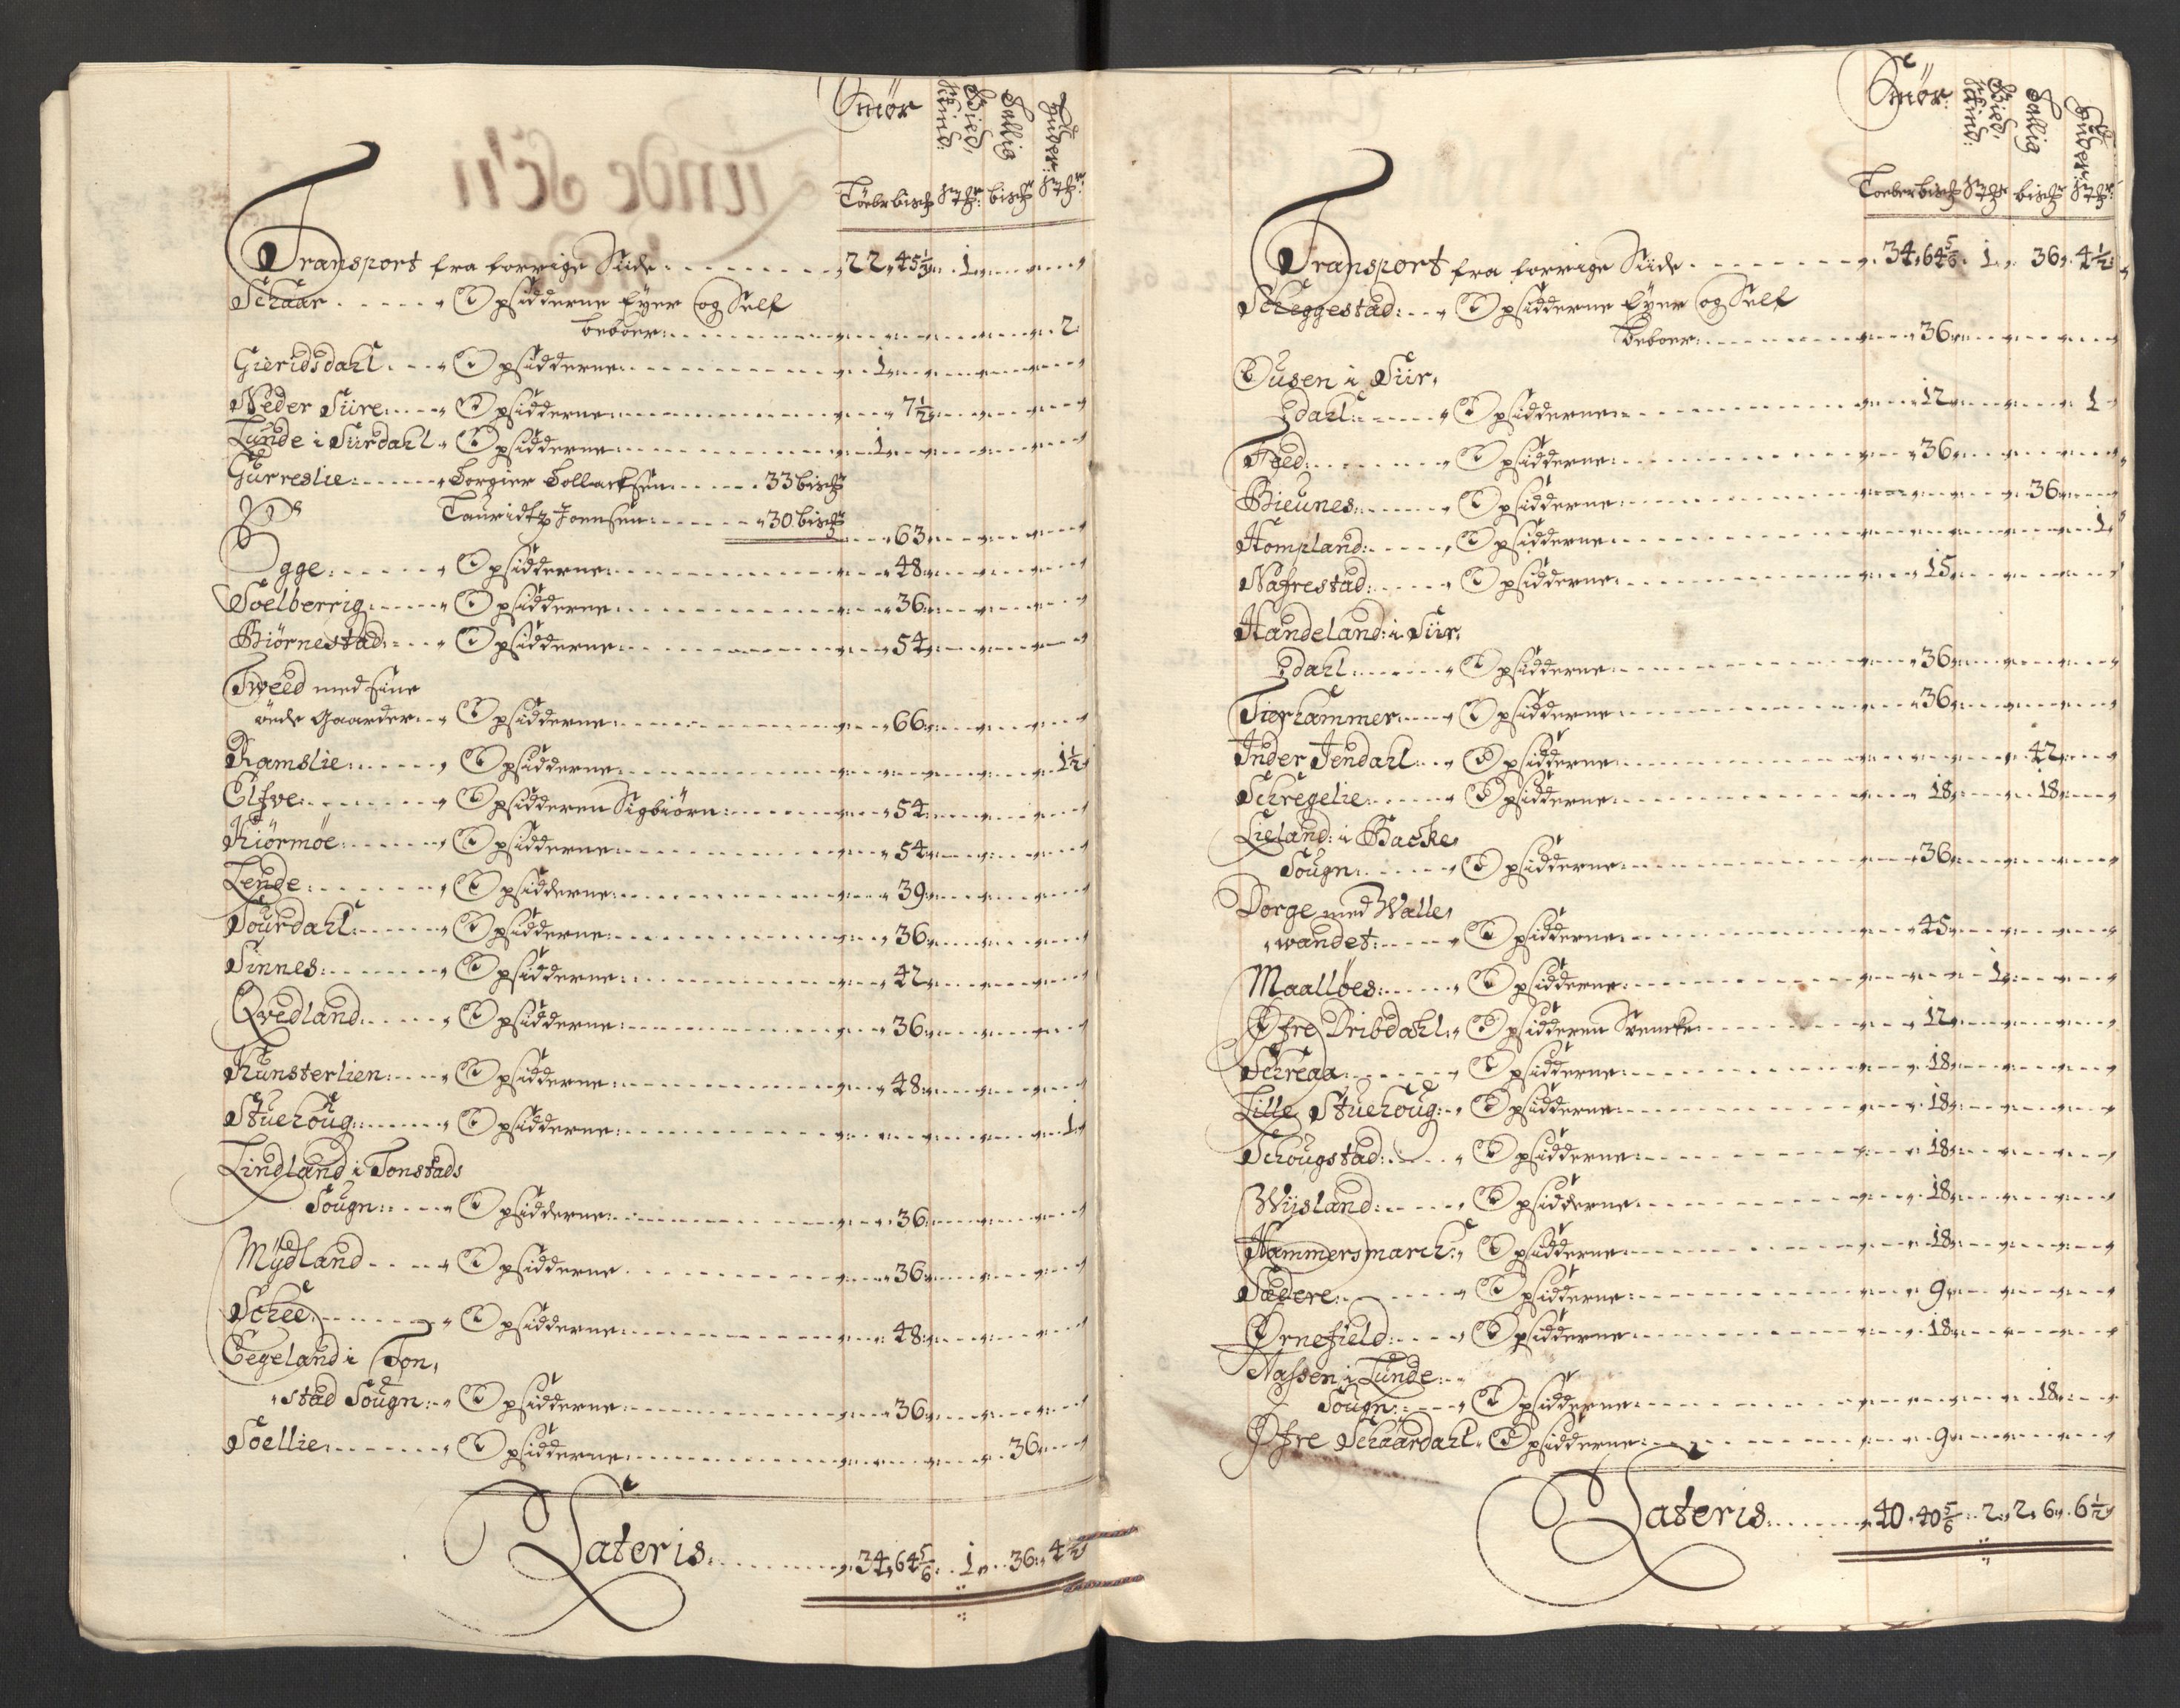 Smør
Huder:
Tallig
Transport fra forrige Siide 22 45 1/3 1
Schaar Opsidderne Eyer og Self
beboer: 2
Gieridsdahl Opsidderne 1
Neder Siire Opsidderne 7 1/2
Lunde i Siirdahl Opsidderne 1
Gurreslie Borgier Bollachsen 33 bispd
Tauridtz Joensen 30 bispd 63
Egge Opsidderne 48
Soelberrig Opsidderne 36
Biörnestad Opsidderne 54
Tveed med sine
øede Gaarder Opsidderne 66
Ramslie Opsidderne 1 1/2
Elfve Opsidderen Sigbiörn 54
Kiörmöe Opsidderne 54
Lende Opsidderne 39
Sourdahl Opsidderne 36
Sinnes Opsidderne 42
Qvedland Opsidderne 36
Kunsterlien Opsidderne 48
Stuehoug Opsidderne 1
Lindland i Tonstads
Sougn Opsidderne 36
Mÿdland Opsidderne 36
Schee Opsidderne 48
Eegeland i Ton,
stad Sougn Opsidderne 36
Söellie Opsidderne 36
Lateris 34 64 5/6 1 36 4 1/2
Smør
Tallig
Huder:
Transport fra forrige Siide 34 64 5/6 1 36 4 1/2
Scheggestad Opsidderne Eyer og Self
beboer 36
Ousen i Siir,
dahl Opsidderne 12 1
Feed Opsidderne 36
Bieunes Opsidderne 36
Hompland Opsidderne 1
Nafrestad Opsidderne 15
Handeland i Siir,
dahl Opsidderne 36
Tiorhammer Opsidderne 36
Inder Jendahl Opsidderne 42
Schregelie Opsidderne 18 18
Lieland i Backe
Sougn Opsidderne 36
Dorge med Walle,
wandet Opsidderne 45
Maallöes Opsidderne 1
Øfre Dribdahl Opsidderen 12
Schreaa Opsidderne 18
Lille Stuehoug Opsidderne 18
Schougstad Opsidderne 18
Wiisland Opsidderne 18
Hammersmarch Opsidderne 18
Sædere Opsidderne 9
Ørnefield Opsidderne 18
Nassen i Lunde
Sougn Opsidderne 18
Øfre Schaardahl Opsidderne 9
Lateris 40 40 5/6 2 2 6 6 1/2